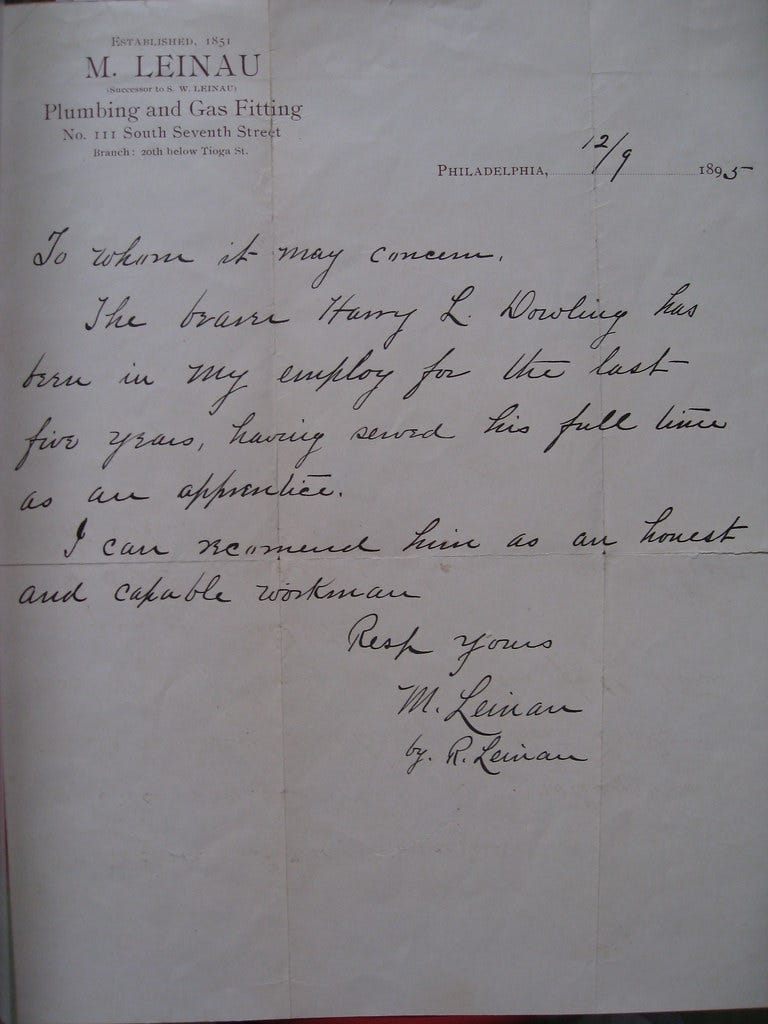 ESTABLISHED, 1851
M. LEINAU
(Successor to S. W. LEINAU)
Plumbing and Gas Fitting
No. 111 South Seventh Street
Branch: 20th below Tioga St.
PHILADELPHIA, 12/9 1895
To whom it may concern.
The bearer Harry L. Dowling has
been in my employ for the last
five years, having served his full time
as an apprentice.
I can recomend him as an honest
and capable workman
Resp yours
M. Leinau
by. R. Leinau